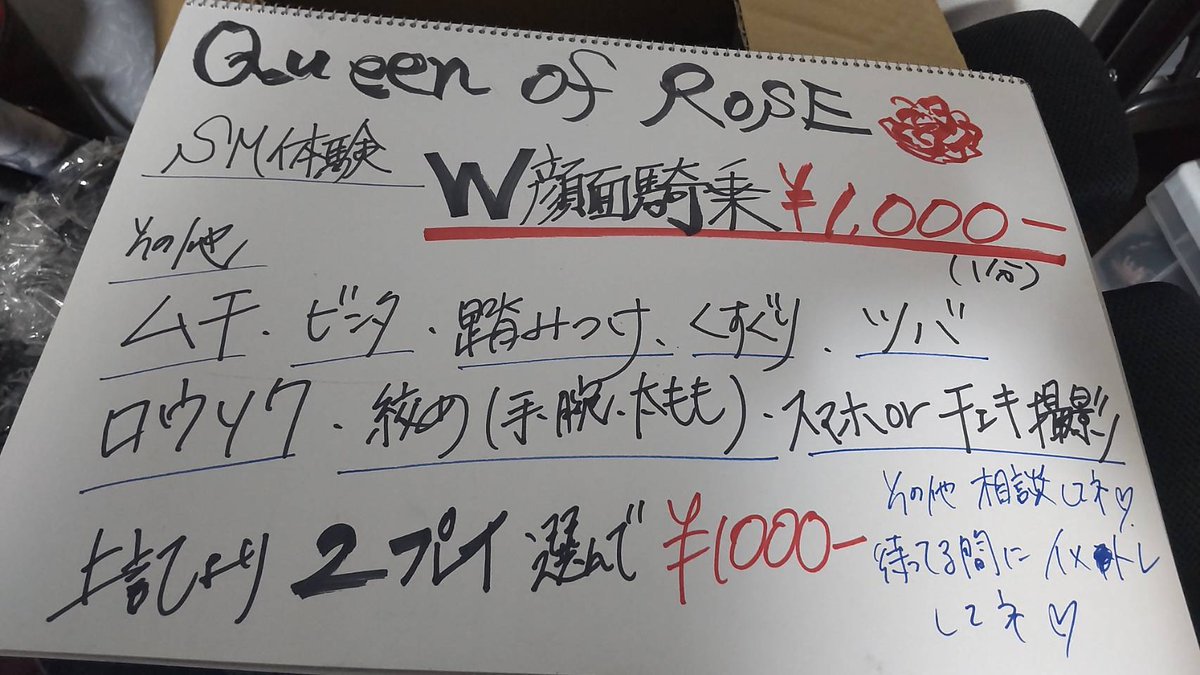 Queen of ROSE
SM体験
W顔面騎乗 ¥1,000-
(1分)
その他
ムチ、ビンタ、踏みつけ、くすぐり、ツバ
ロウソク、絞め(手、腕、太もも)、スマホorチェキ撮影
上記より 2プレイ 選んで ¥1000-
その他 相談してネ♡
待ってる間に イメトレ
してネ♡